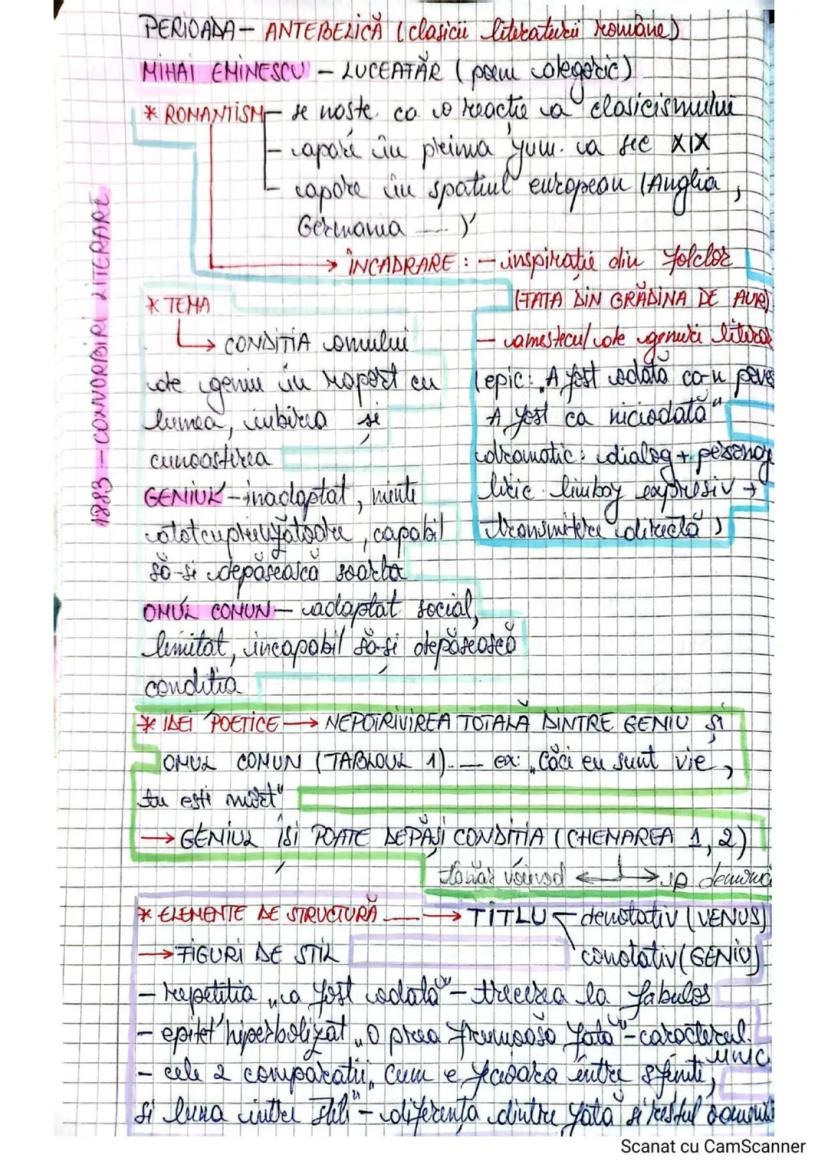 PERIOADA - ANTEBELICĂ (clasicii literaturii române)
MIHAI EMINESCU - LUCEAFĂR (poem alegoric)
* ROMANTISM - se naste ca o reactie la clasicismului
- apare în prima jum. a sec XIX
- apare în spatiul european (Anglia,
Germania ....)
→ ÎNCADRARE: - inspiratie din folclor
(FATA DIN GRĂDINA DE AUR)
- amestecul de genuri litera
(epic: „A fost odată ca-n pove
A fost ca niciodată"
dramatic: dialog + personaj
liric: limbaj expresiv +
transmitere directă)
1883 - CONVORBIRI LITERARE
* TEMA
→ CONDITIA omului
de geniu în raport cu
lumea, iubirea și
cunoasterea
GENIUL - inadaptat, minte
atotcuprinzătoare, capabil
să-si depăsească soarta
OMUL COMUN - adaptat social,
limitat, incapabil să-și depăsească
conditia
* IDEI POETICE → NEPOTRIVIREA TOTALĂ DINTRE GENIU ȘI
OMUL COMUN (TABLOUL 1) .... ex: „Căci eu sunt vie,
tu esti mort"
→ GENIUL ÎȘI POATE DEPĂȘI CONDITIA (CHEMAREA 1, 2)
tânăr voievod ← → demonic
* ELEMENTE DE STRUCTURĂ → TITLU - denotativ (VENUS)
conotativ (GENIU)
→ FIGURI DE STIL
- repetitia „a fost odată" - trecerea la fabulos
- epitet hiperbolizat „O prea frumoasă fată" - caracterul
unic
- cele 2 comparatii „Cum e fecioara între sfinti,
si luna între stele" - diferenta dintre fată și restul
Scanat cu CamScanner